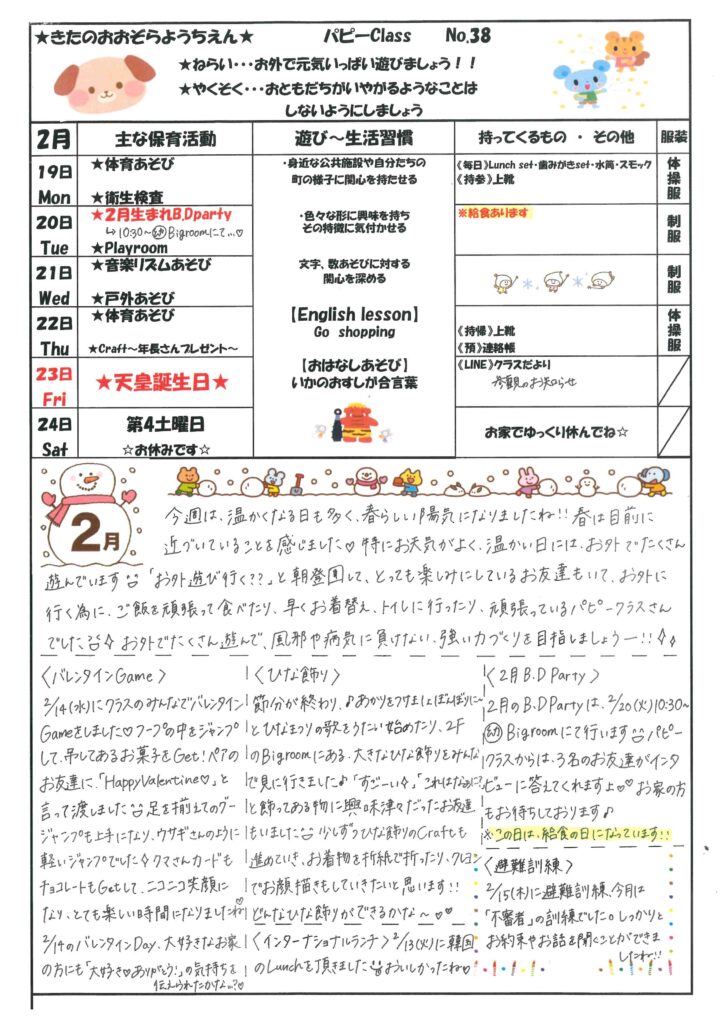 ★きたのおおぞらようちえん★ パピーClass No.38
★ねらい・・・お外で元気いっぱい遊びましょう！！
★やくそく・・・おともだちがいやがるようなことは
しないようにしましょう
2月 主な保育活動 遊び～生活習慣 持ってくるもの ・ その他 服装
19日 Mon
★体育あそび
★衛生検査
・身近な公共施設や自分たちの
町の様子に関心を持たせる
《毎日》Lunch set・歯みがきset・水筒・スモック
《持参》上靴
体操服
20日 Tue
★2月生まれB.Dparty
↳10:30～幼Bigroomにて…♡
★Playroom
・色々な形に興味を持ち
その特徴に気付かせる
※給食あります
制服
21日 Wed
★音楽リズムあそび
★戸外あそび
文字、数あそびに対する
関心を深める
制服
22日 Thu
★体育あそび
★Craft～年長さんプレゼント～
【English lesson】
Go shopping
《持帰》上靴
《預》連絡帳
体操服
23日 Fri
★天皇誕生日★
【おはなしあそび】
いかのおすしが合言葉
《LINE》クラスだより
参観のお知らせ
24日 Sat
第4土曜日
☆お休みです☆
お家でゆっくり休んでね☆
2月
今週は、温かくなる日も多く、春らしい陽気になりましたね!! 春は目前に
近づいていることを感じました♡ 特にお天気がよく、温かい日には、お外でたくさん
遊んでいます 「お外遊び行く??」と朝登園して、とっても楽しみにしているお友達もいて、お外に
行く為に、ご飯を頑張って食べたり、早くお着替え、トイレに行ったり、頑張っているパピークラスさん
でした お外でたくさん遊んで、風邪や病気に負けない、強い力づくりを目指しましょうー!!
〈バレンタインGame〉
2/14(水)にクラスのみんなでバレンタイン
Gameをしました♡フープの中をジャンプ
して、吊してあるお菓子をGet! ペアの
お友達に、「HappyValentine♡」と
言って渡しました 足を揃えてのグー
ジャンプも上手になり、ウサギさんのように
軽いジャンプでした クマさんカードも
チョコレートもGetして、ニコニコ笑顔に
なり、とても楽しい時間になりましたね♡
2/14のバレンタインDay、大好きなお家
の方にも「大好き♡ありがとう!」の気持ちを
伝えられたかな…?♡
〈ひな飾り〉
節分が終わり、♪あかりをつけましょぼんぼりに～
とひなまつりの歌をうたい始めたり、2F
のBigroomにある、大きなひな飾りをみんな
で見に行きました♪「すごーい☆」「これはなあに?」
と飾ってある物に興味津々だったお友達
もいました 少しずつひな飾りのCraftも
進めていき、お着物を折紙で折ったり、クレヨン
でお顔描きもしていきたいと思います!!
どんなひな飾りができるかな～♡♡
〈インターナショナルランチ〉2/13(火)に韓国
のLunchを頂きました おいしかったね♡
〈2月B.D Party〉
2月のB.D Partyは、2/20(火)10:30～
幼Bigroomにて行います パピー
クラスからは、3名のお友達がインタ
ビューに答えてくれますよ♡♡ お家の方
もお待ちしております♪
※この日は、給食の日になっています!!
〈避難訓練〉
2/15(木)に避難訓練、今月は
「不審者」の訓練でした。しっかりと
お約束やお話を聞くことができま
したね!!